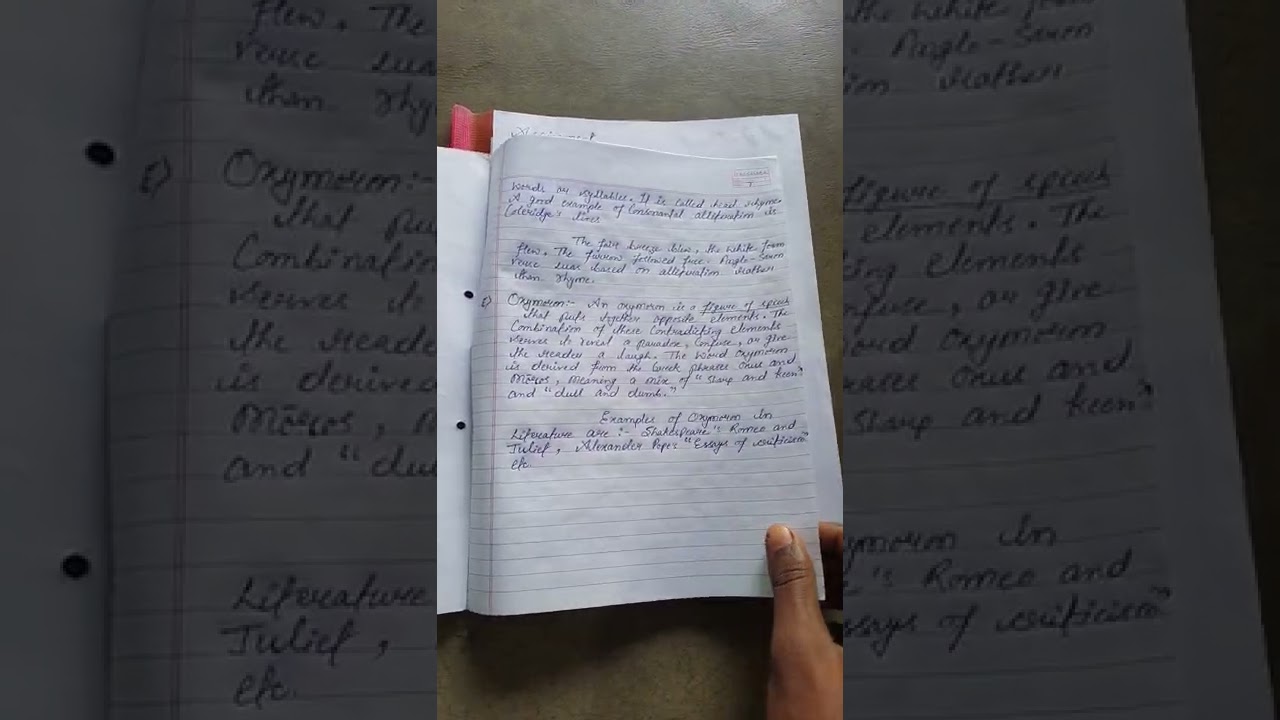 Assignment
7
words or syllables. It is called head rhyme.
A good example of Consonantal alliteration is
Coleridge's lines
The fair breeze blew, the white foam
flew, The furrow followed free. Anglo-Saxon
verse was based on alliteration rather
than rhyme.
Oxymoron:- An oxymoron is a figure of speech
that puts together opposite elements. The
Combination of these Contradicting elements
serves to reveal a paradox, Confuse, or give
the reader a laugh. The word oxymoron
is derived from the Greek phrases Oxus and
Mōros, meaning a mix of "sharp and keen"
and "dull and dumb."
Examples of Oxymoron in
Literature are:- Shakespeare's Romeo and
Juliet, Alexander Pope's "Essays of criticism"
etc.